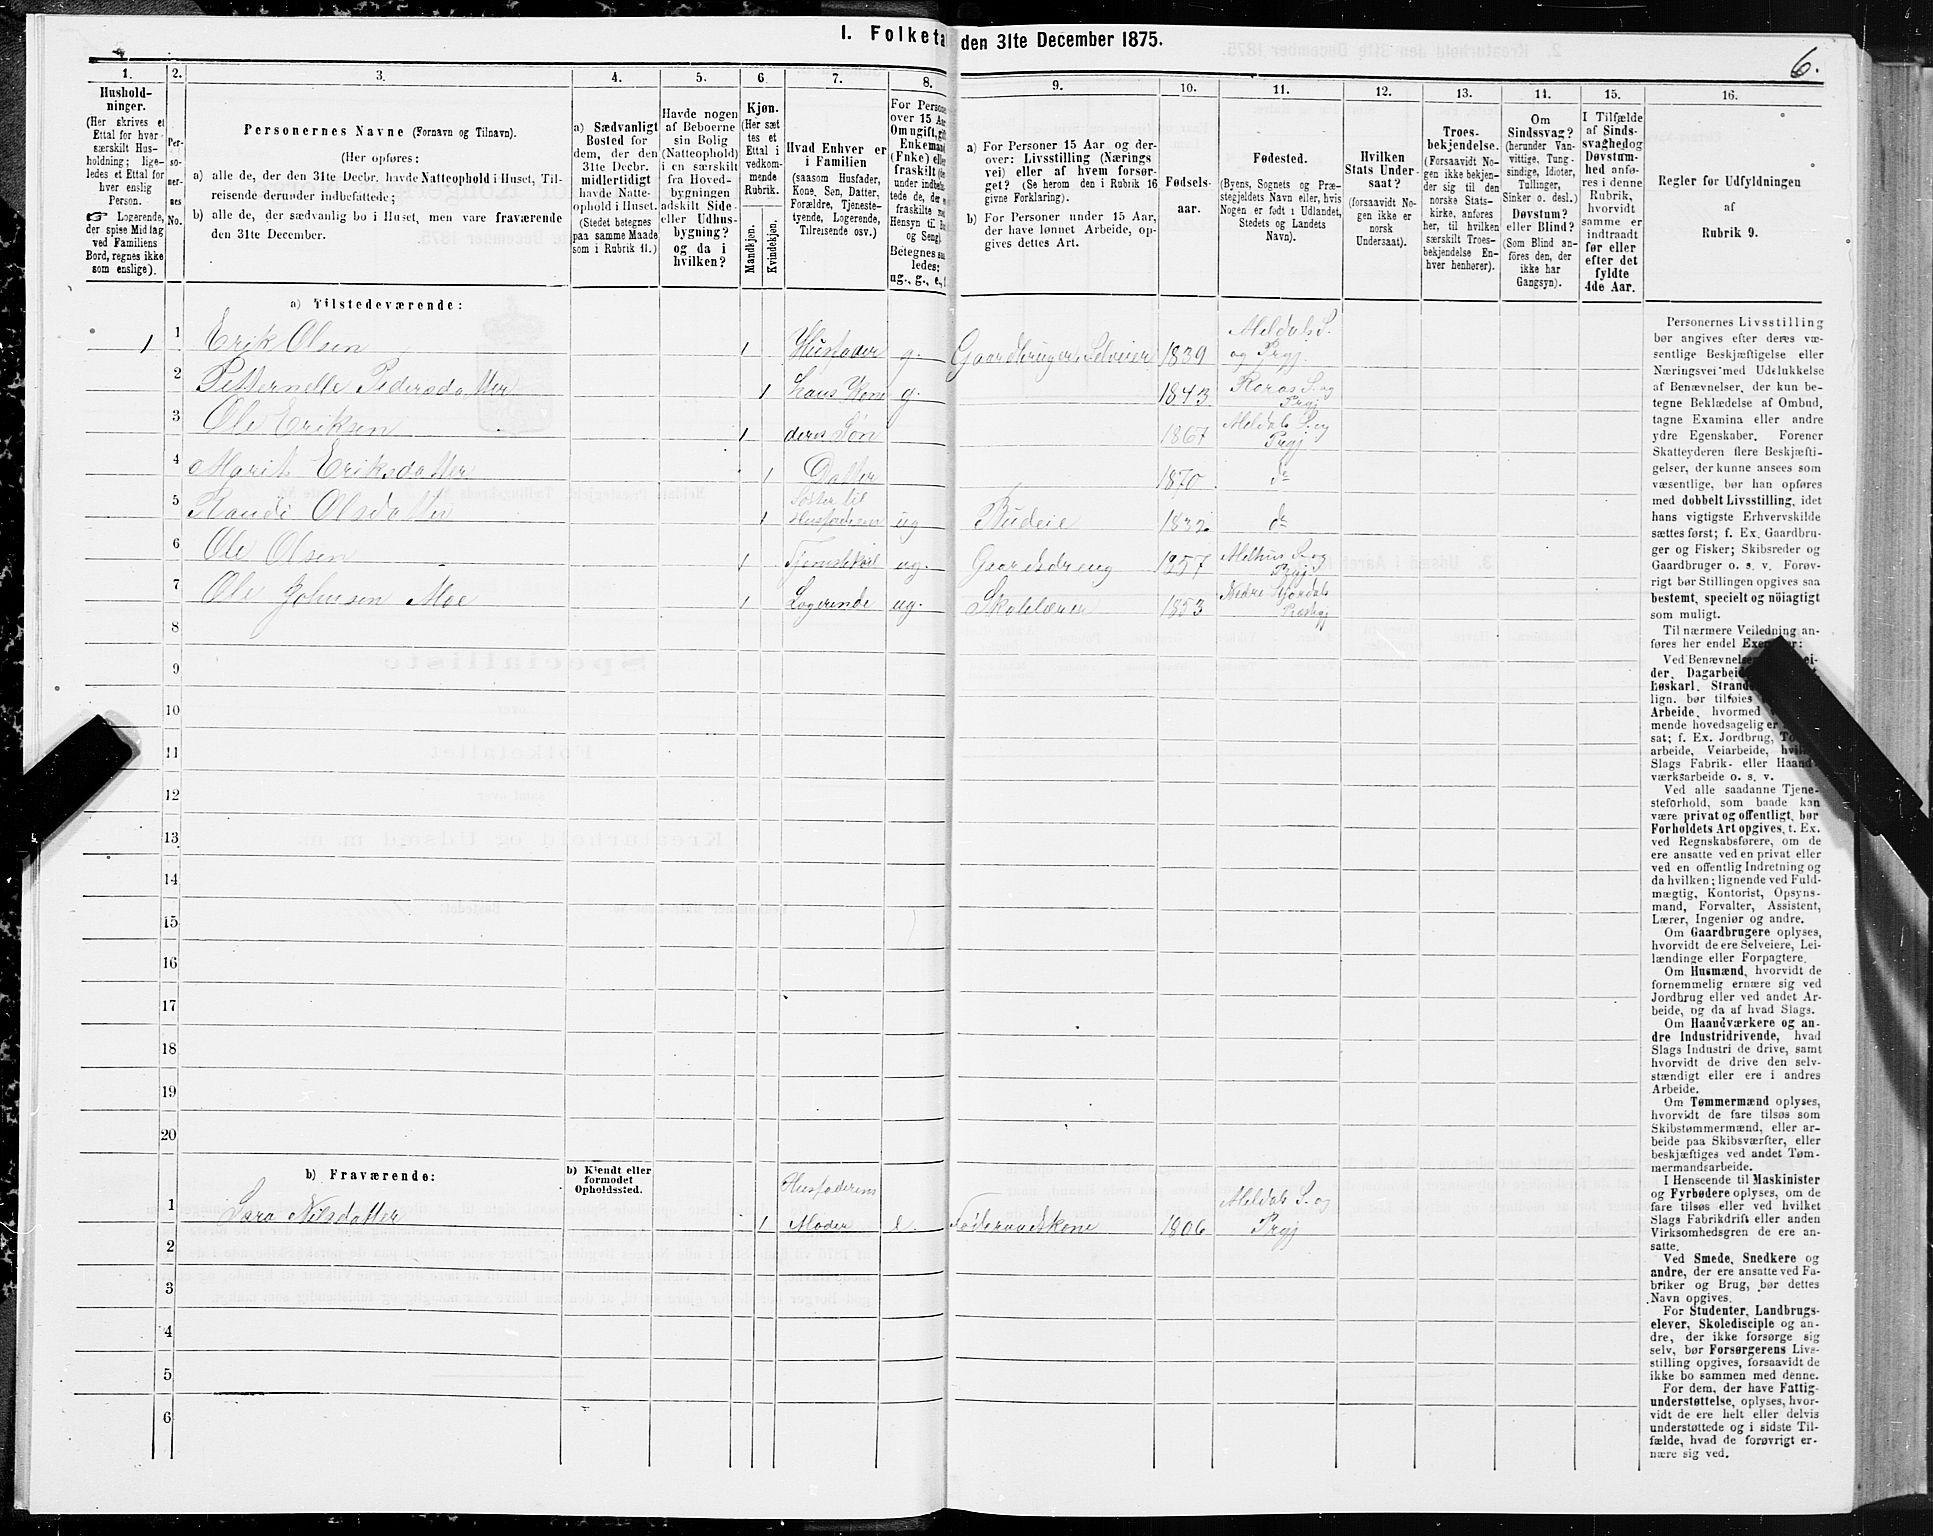 I. Folketa den 31te December 1875.
6.
1.
2.
3.
4.
5.
6.
7.
8.
9.
10.
11.
12.
13.
14.
15.
16.
Hushold-
ninger.
(Her skrives et
Ettal for hver
særskilt Hus-
holdning; lige-
ledes et Ettal for
hver enslig
Person.
☞ Logerende,
der spise Middag
ved Familiens
Bord, regnes ikke
som enslige).
Per-
so-
ner-
nes
No.
Personernes Navne (Fornavn og Tilnavn).
(Her opføres:
a) alle de, der den 31te Decbr. havde Natteophold i Huset, Til-
reisende derunder indbefattede;
b) alle de, der sædvanlig bo i Huset, men vare fraværende
den 31te December.
a) Sædvanligt
Bosted for
dem, der den
31te Decbr.
midlertidigt
havde Natte-
ophold i Huset.
(Stedet betegnes
paa samme Maade
som i Rubrik 11.)
Havde nogen
af Beboerne
sin Bolig
(Natteophold)
i en særskilt
fra Hoved-
bygningen
adskilt Side-
eller Udhus-
bygning?
og da i
hvilken?
Kjøn.
(Her sæt
tes et
Ettal i
vedkom-
mende
Rubrik.
Mandkjøn.
Kvindekjøn.
Hvad Enhver er
i Familien
(saasom Husfader,
Kone, Søn, Datter,
Forældre, Tjeneste-
tyende, Logerende,
Tilreisende osv.)
For Persone
over 15 Aar
Om ugift, gift
Enkemand
(Enke) eller
fraskilt (de
under indbefat-
tede de, der e
fraskilte med
Hensyn til Bo
og Seng).
Betegnes saa
ledes:
ug., g., e., f.
a) For Personer 15 Aar og der-
over: Livsstilling (Nærings
vei) eller af hvem forsør-
get? (Se herom den i Rubrik 16
givne Forklaring).
b) For Personer under 15 Aar,
der have lønnet Arbeide, op-
gives dettes Art.
Fødsels-
aar.
Fødested.
(Byens, Sognets og Præ-
stegjeldets Navn eller, hvis
Nogen er født i Udlandet,
Stedets og Landets
Navn).
Hvilken
Stats Under-
saat?
(forsaavidt No-
gen ikke er
norsk
Undersaat).
Troes-
bekjendelse.
(Forsaavidt No-
gen ikke bekjen-
der sig til den
norske Stats-
kirke, anføres
her, til hvilken
særskilt Troes-
bekjendelse En-
hver henhører).
Om
Sindssvag?
(herunder Van-
vittige, Tung-
sindige, Idioter,
Tullinger,
Sinker o. desl.)
Døvstum?
eller Blind?
(Som Blind an-
føres den, der
ikke har
Gangsyn).
I Tilfælde
af Sinds-
svaghed og
Døvstum-
hed anfø-
res i denne
Rubrik,
hvorvidt
samme er
indtraadt
før eller
efter det
fyldte
4de Aar.
Regler for Udfyldningen
af
Rubrik 9.
a) Tilstedeværende:
1 1 Erik Olsen 1 Husfader g. Gaardbruger Selveier 1839 Meldals S. og Prgj.
2 Petternelle Pedersdatter 1 hans Kone g. 1843 Røros S. og Prgj
3 Ole Eriksen 1 deres Søn 1867 Meldals S. og Prgj
4 Marit Eriksdatter 1 Datter 1870 do
5 Randi Olsdatter 1 Søster til Husfaderen ug Budeie 1832 do
6 Ole Olsen 1 Tjenestekarl ug. Gaardsdreng 1857 Melhus S. og Prgj.
7 Ole Johnsen Moe 1 Logerende ug. Skolelærer 1853 Nedre Stjørdals Prestegj
8
9
10
11
12
13
14
15
16
17
18
19
20
b) Fraværende:
b) Kjendt eller
formodet
Opholdssted.
1 Sara Nilsdatter 1 Husfaderens Moder e. Føderaadskone 1806 Meldals S. og Prgj
2
3
4
5
6
Personernes Livsstilling
bør angives efter deres væ-
sentlige Beskjæftigelse eller
Næringsvei med Udelukkelse
af Benævnelser, der kun be-
tegne Beklædelse af Ombud,
tagne Examina eller andre
ydre Egenskaber. Forener
Skatteyderen flere Beskjæfti-
gelser, der kunne ansees som
væsentlige, bør han opføres
med dobbelt Livsstilling, idet
hans vigtigste Erhvervskilde
sættes først; f. Ex. Gaardbru-
ger og Fisker; Skibsreder og
Gaardbruger o. s. v. Forøv-
rigt bør Stillingen opgives saa
bestemt, specielt og nöiagtigt
som muligt.
Til nærmere Veiledning an-
føres her endel Exempler:
Ved Benævnelser
der, Dagarbei
Løskarl, Strand
lign. bør tilføies
Arbeide, hvormed
mende hovedsagelig er
sat; f. Ex. Jordbrug,
arbeide, Veiarbeide, hvil
Slags Fabrik- eller Haand-
værksarbeide o. s. v.
Ved alle saadanne Tjene-
steforhold, som baade kan
være privat og offentligt, bør
Forholdets Art opgives, t. Ex.
ved Regnskabsførere, om de
ere ansatte ved en privat eller
ved en offentlig Indretning og
da hvilken; lignende ved Fuld-
mægtig, Kontorist, Opsyns-
mand, Forvalter, Assistent,
Lærer, Ingeniør og andre.
Om Gaardbrugere oplyses,
hvorvidt de ere Selveiere, Lei-
lændinge eller Forpagtere.
Om Husmænd, hvorvidt de
fornemmelig ernære sig ved
Jordbrug eller ved andet Ar-
beide, og da af hvad Slags.
Om Haandværkere og an-
dre Industridrivende, hvad
Slags Industri de drive, samt
hvorvidt de drive den selv-
stændigt eller ere i andres
Arbeide.
Om Tømmermænd oplyses,
hvorvidt de fare tilsøs som
Skibstømmermænd, eller ar-
beide paa Skibsværfter, eller
beskjæftiges ved andet Tøm-
mermandsarbeide.
I Henseende til Maskinister
og Fyrbødere oplyses, om de
fare tilsøs eller ved hvilket
Slags Fabrikdrift eller anden
Virksomhedsgren de ere an-
satte.
Ved Smede, Snedkere og
andre, der ere ansatte ved Fa-
briker og Brug, bør dettes
Navn opgives.
For Studenter, Landbrugs-
elever, Skoledisciple og an-
dre, der ikke forsørge sig
selv, bør Forsørgerens Livs-
stilling opgives, forsaavidt de
ikke bo sammen med denne.
For dem, der have Fattig-
understøttelse, oplyses, hvor-
vidt de ere helt eller delvis
understøttede og i sidste Til-
fælde, hvad de forøvrigt er-
nære sig ved.